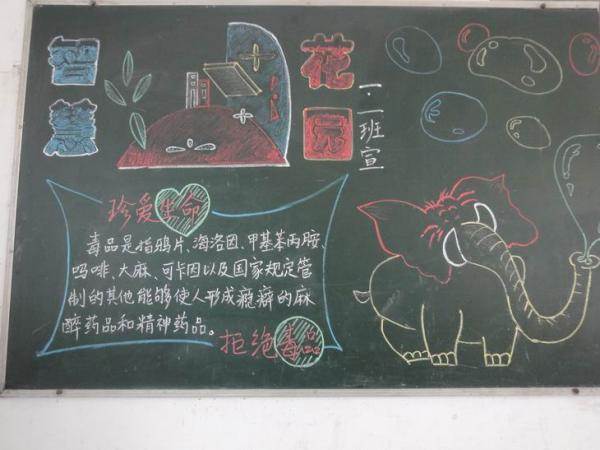 智慧
花园
一.二班宣
珍爱生命
毒品是指鸦片、海洛因、甲基苯丙胺、
吗啡、大麻、可卡因以及国家规定管
制的其他能够使人形成瘾癖的麻
醉药品和精神药品。
拒绝毒品